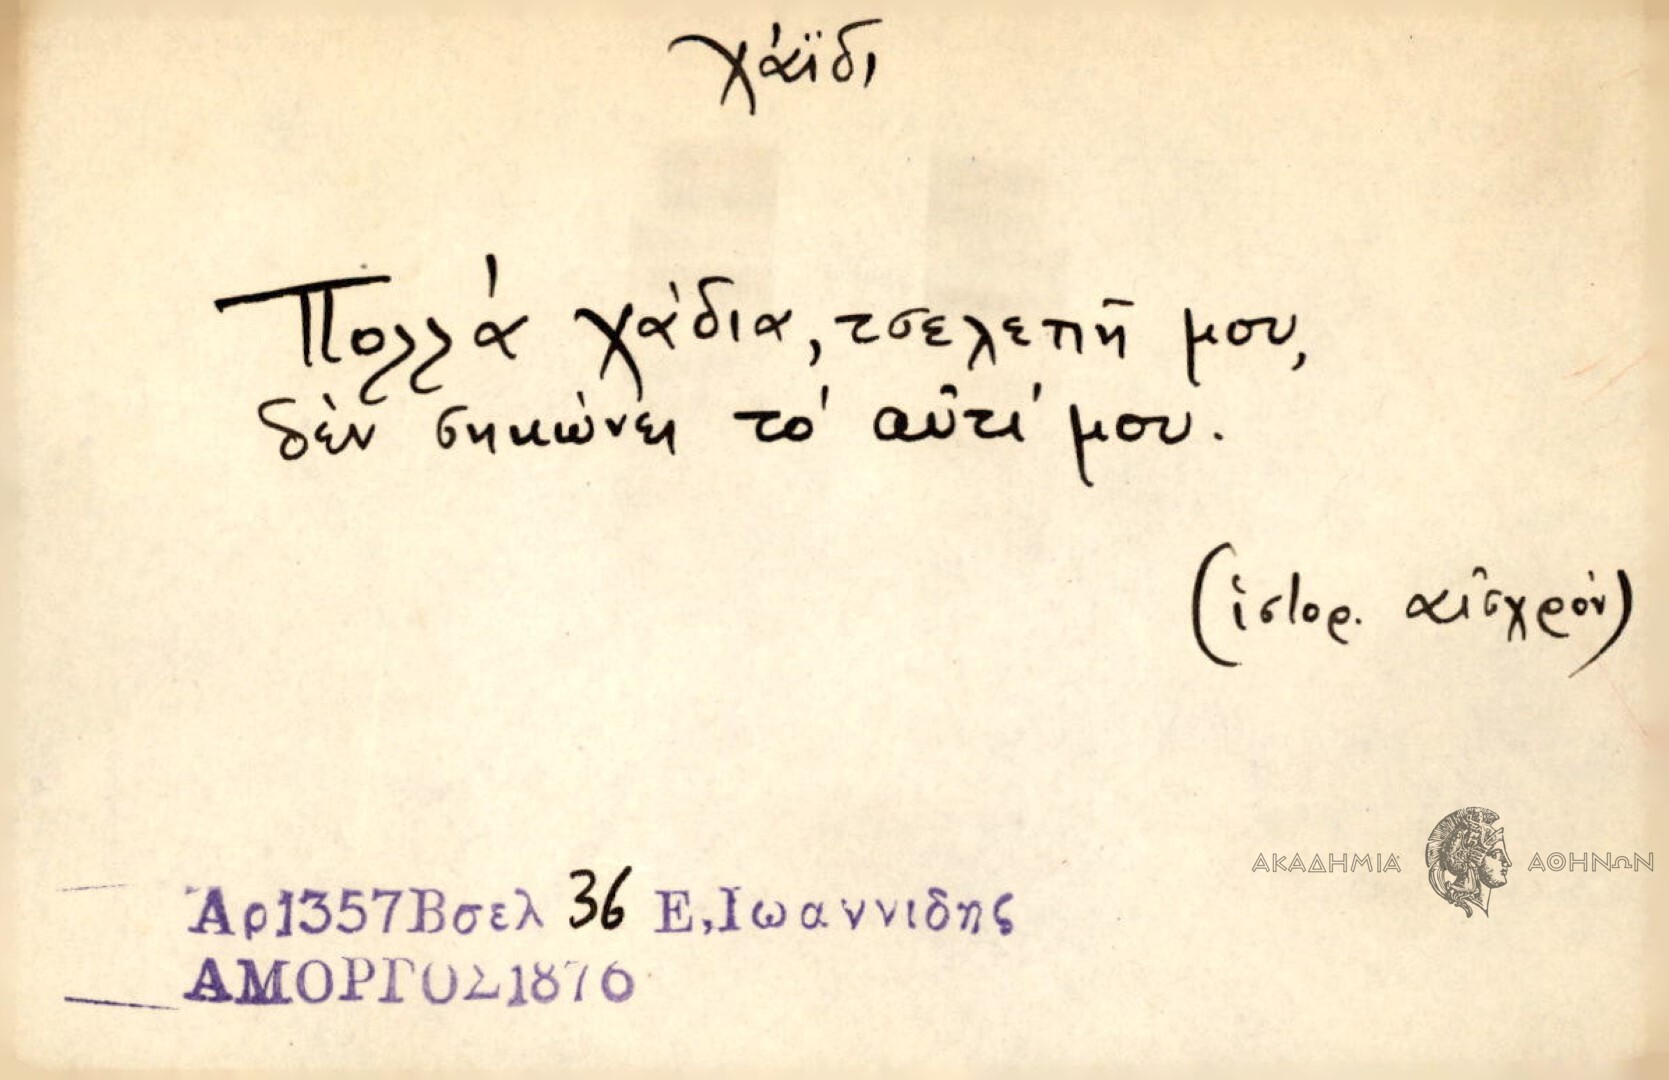 χάϊδι
Πολλά χάδια, τσελεπῆ μου,
δὲν σηκώνει τό αὖτί μου.
(ἱστορ. αἰσχρόν)
ΑΚΑΔΗΜΙΑ ΑΘΗΝΩΝ
Ἀρ1357Βσελ 36 Ε,Ιωαννιδης
ΑΜΟΡΓΟΣ1876